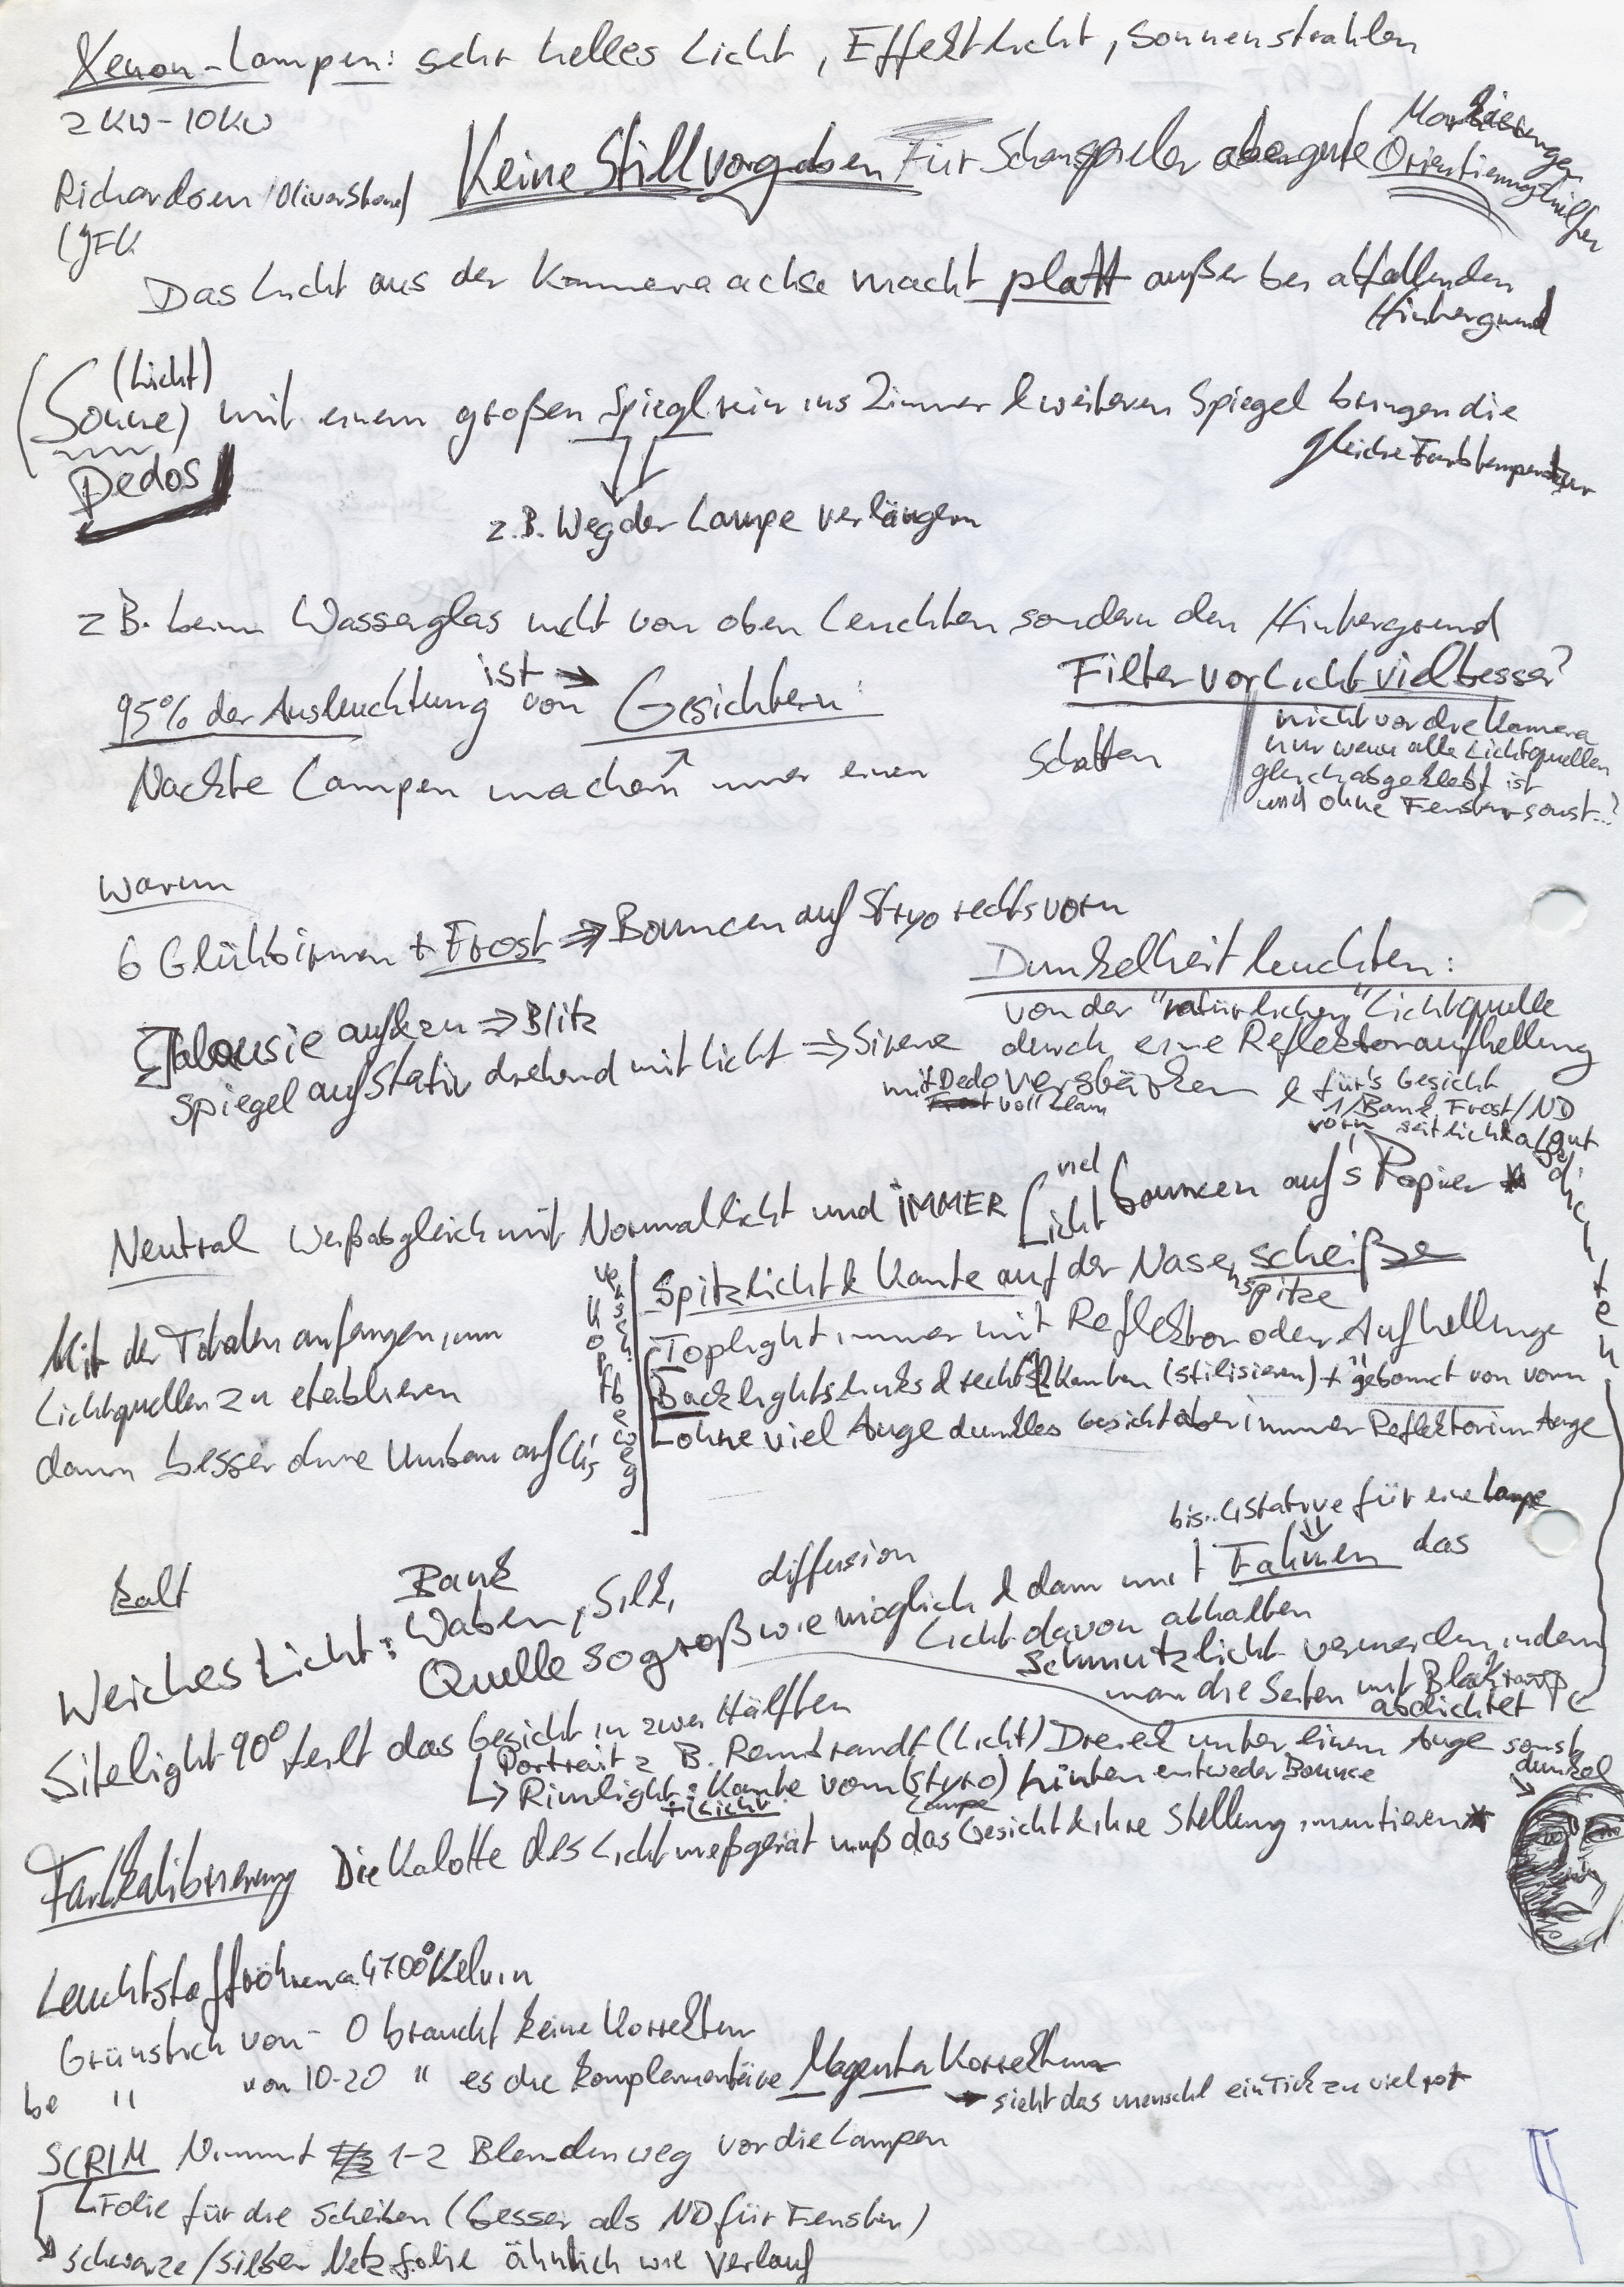 Xenon-Lampen: sehr helles Licht, Effektlicht, Sonnenstrahlen
2KW-10KW
Keine Stillvorgaben für Schauspieler aber gute Orientierungshilfen
Markierungen
Richardson/OliverStone)
(JFK
Das Licht aus der Kameraachse macht platt außer bei abfallenden
Hintergrund
(Licht)
(Sonne) mit einem großen Spiegl rein ins Zimmer & weiteren Spiegel bringen die
gleiche Farbtemperatur
Dedos
z.B. Weg der Lampe verlängern
z B. beim Wasserglas nicht von oben leuchten sondern den Hintergrund
95% der Ausleuchtung ist von Gesichtern:
Nackte Lampen machen immer einen Schatten
Filter vor Licht viel besser?
nicht vor die Kamera
nur wenn alle Lichtquellen
gleich abgeklebt ist
und ohne Fenster sonst..?
warum
6 Glühbirnen + Frost ⇒ Bouncen auf Styo rechts vorn
Jalousie außen ⇒ Blitz
Spiegel auf Stativ drehend mit Licht ⇒ Sirene
Dunkelheit leuchten:
von der "natürlichen" Lichtquelle
durch eine Reflektoraufhellung
mit Dedo verstärken & für's Gesicht
voll
1/Bank, Frost/ND
vorn seitlich
gut
abdichten
Neutral Weißabgleich mit Normallicht und IMMER viel Licht bouncen auf's Papier *
Mit der Totalen anfangen, um
Lichtquellen zu etablieren
dann besser ohne Umbau auf Cls
Kopfbeweg
Spitzlicht & Kante auf der Nasenspitze scheiße
Toplight immer mit Reflektor oder Aufhellung
Backlights links & rechts & Kanten (stilisieren) + "gebounct von vorn
ohne viel Auge dunkles Gesicht aber immer Reflektor im Auge
bis.. 4 Stative für eine Lampe
kalt
Weiches Licht: Bank
Waben, Silk, diffusion
Quelle so groß wie möglich & dann mit Fahnen das
Licht davon abhalten
Schmutzlicht vermeiden, indem
man die Seiten mit Blacktrapp
abdichtet
Sitelight 90° teilt das Gesicht in zwei Hälften
Portrait z B. Remdrandt (Licht) Dreieck unter einem Auge sonst
dunkel
↳ Rimlight: Kante vorn (Styro) hinten entweder Bounce
+ Licht
Lampe
Farbkalibrierung Die Kalotte des Lichtmeßgerät muß das Gesicht & ihre Stellung imitieren *
Leuchtstoffröhren ca. 4700° Kelvin
Grünstich von - 0 braucht keine Korrektur
be " von 10-20 " es die komplementäre Magenta Korrektur
→ sieht das menschl ein Tick zu viel rot
SCRIM Nimmt 1-2 Blenden weg vor die Lampen
Folie für die Scheiben (besser als ND für Fenster)
schwarze/silber Netzfolie ähnlich wie Verlauf